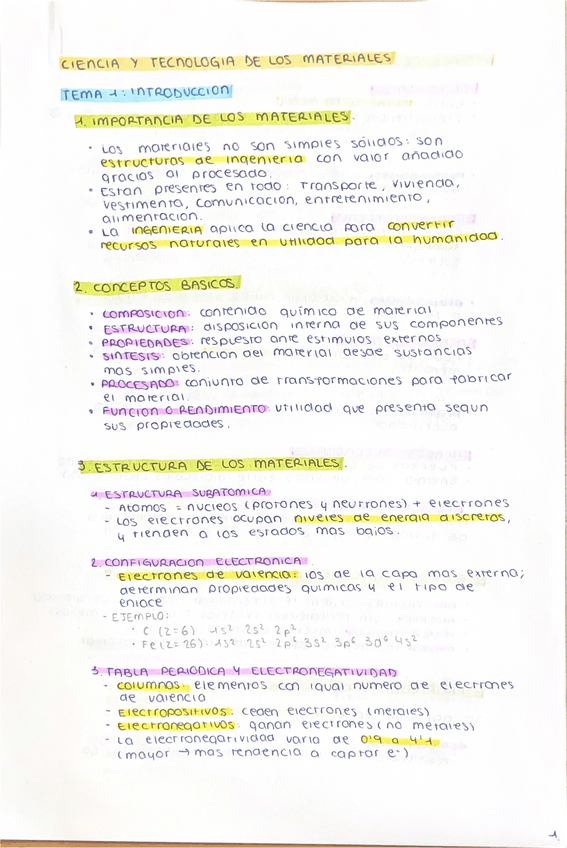 CIENCIA Y TECNOLOGIA DE LOS MATERIALES
TEMA 1: INTRODUCCION
1. IMPORTANCIA DE LOS MATERIALES.
• Los materiales no son simples sólidos: son
estructuras de ingenieria con valor añadido
gracias al procesado.
• Estan presentes en todo: Transporte, vivienda,
vestimenta, comunicacion, entretenimiento,
alimentacion.
• La INGENIERIA aplica la ciencia para convertir
recursos naturales en utilidad para la humanidad.
2. CONCEPTOS BASICOS.
• COMPOSICION: contenido químico de material
• ESTRUCTURA: disposicion interna de sus componentes
• PROPIEDADES: respuesto ante estimulos externos
• SINTESIS: obtencion del material desde sustancias
mas simples.
• PROCESADO: conjunto de transformaciones para fabricar
el material.
• FUNCION O RENDIMIENTO: utilidad que presenta segun
sus propiedades.
3. ESTRUCTURA DE LOS MATERIALES.
1. ESTRUCTURA SUBATOMICA
- Atomos = nucleos (protones y neutrones) + electrones
- Los electrones ocupan niveles de energia discretos,
y tienden a los estados mas bajos.
2. CONFIGURACION ELECTRONICA.
- Electrones de valencia: los de la capa mas externa;
determinan propiedades quimicas y el tipo de
enlace
- EJEMPLO:
· C (Z=6) 1s² 2s² 2p²
· Fe (Z=26): 1s² 2s² 2p⁶ 3s² 3p⁶ 3d⁶ 4s²
3. TABLA PERIÓDICA Y ELECTRONEGATIVIDAD
- columnas: elementos con igual numero de electrones
de valencia
- Electropositivos: ceden electrones (metales)
- Electronegativos: ganan electrones (no metales)
- La electronegatividad varia de 0'9 a 4'1
(mayor → mas tendencia a captar e⁻)
1.